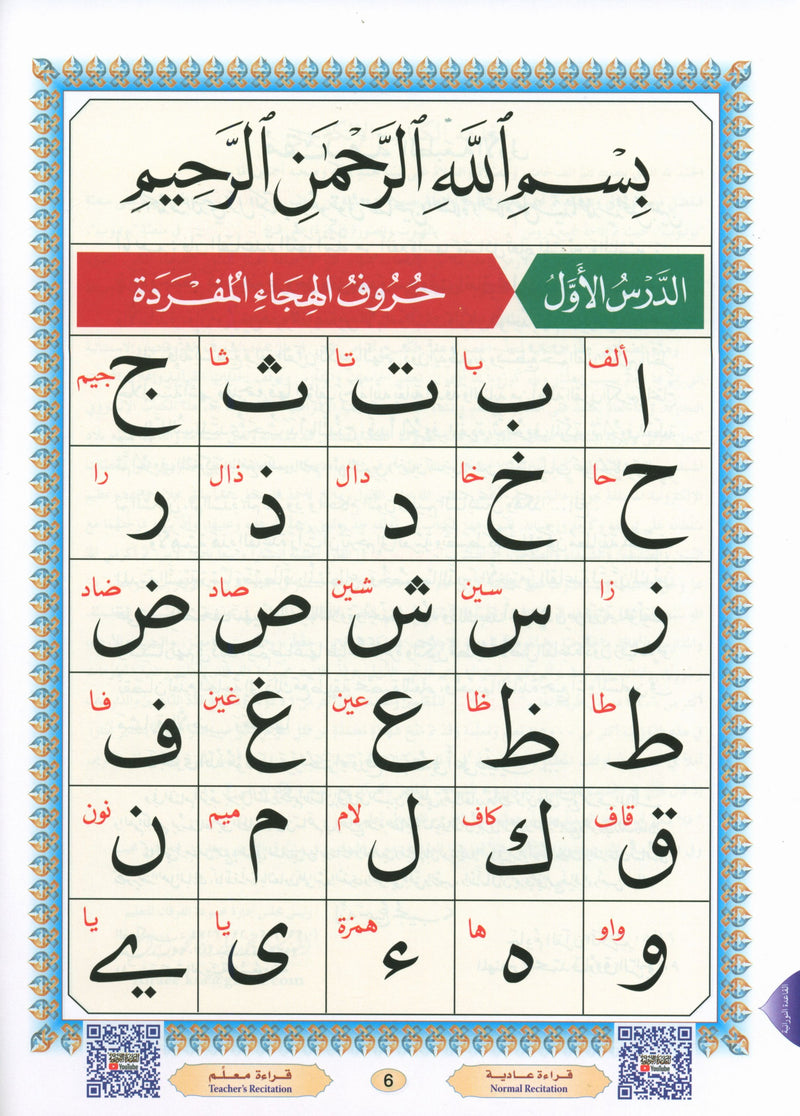 بِسْمِ ٱللَّهِ ٱلرَّحْمَٰنِ ٱلرَّحِيمِ
الدَّرْسُ الأَوَّلُ حُرُوفُ الهِجَاءِ المُفْرَدَة
ألف با تا ثا جيم
ا ب ت ث ج
حا خا دال ذال را
ح خ د ذ ر
زا سين شين صاد ضاد
ز س ش ص ض
طا ظا عين غين فا
ط ظ ع غ ف
قاف كاف لام ميم نون
ق ك ل م ن
واو ها همزة يا يا
و ه ء ى ي
القاعدة النورانية
YouTube
قراءة معلّم
Teacher's Recitation
6
قراءة عادية
Normal Recitation
YouTube